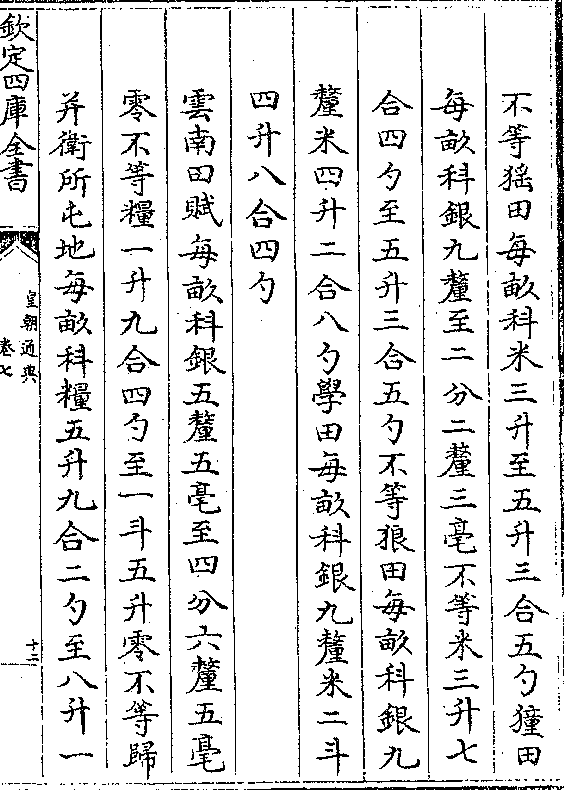 不等猺田每畝科米三升至五升三合五勺獞田
每畝科銀九釐至二分二釐三毫不等米三升七
合四勺至五升三合五勺不等狼田每畝科銀九
釐米四升二合八勺學田每畝科銀九釐米二斗
四升八合四勺
雲南田賦每畝科銀五釐五毫至四分六釐五毫
零不等糧一升九合四勺至一斗五升零不等歸
并衛所屯地每畝科糧五升九合二勺至八升一
欽定四庫全書
皇朝通典
卷七
十二